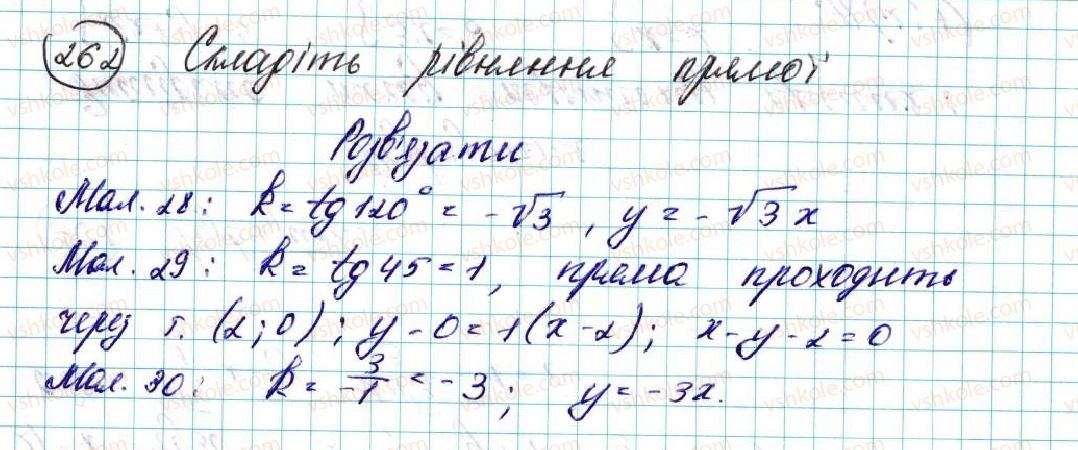 262 Складіть рівняння прямої
Розв'язати
Мал. 28: k = tg 120° = -√3, y = -√3 x
Мал. 29: k = tg 45 = 1, пряма проходить
через т. (2; 0); y - 0 = 1(x - 2); x - y - 2 = 0
Мал. 30: k = 3/-1 = -3; y = -3x.